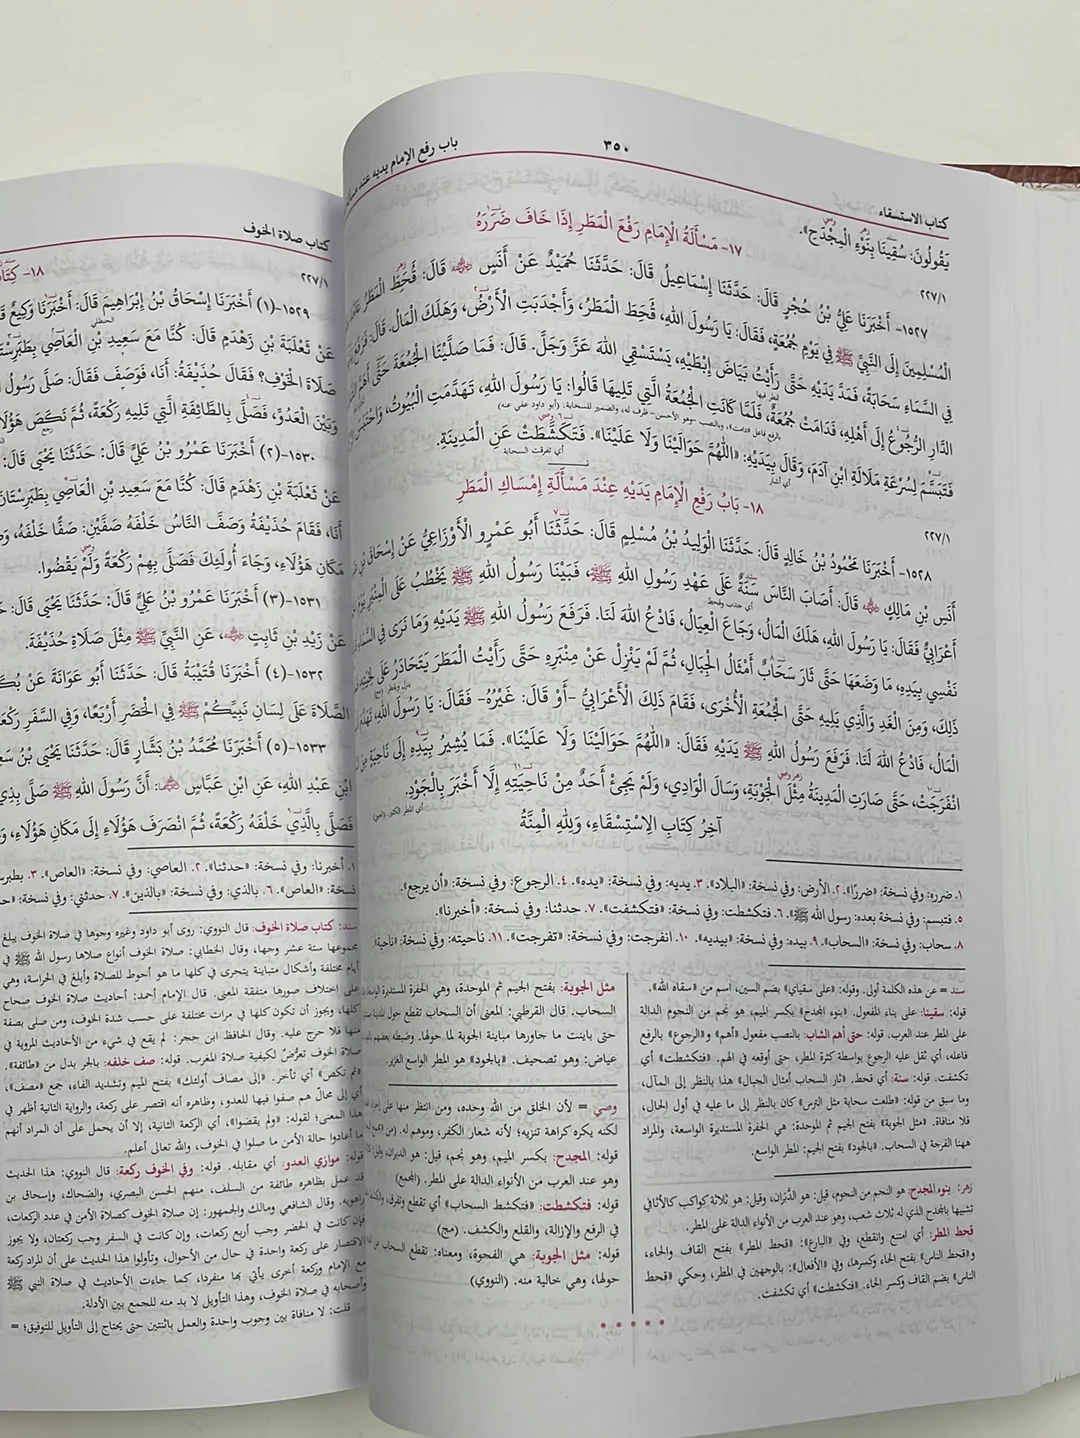 كتاب الاستسقاء
٣٥٠
باب رفع الإمام يديه عند
يَقُولُونَ: سُقِينَا بِنَوْءِ الْمِجْدَحِ».
١٧- مَسْأَلَةُ الْإِمَامِ رَفْعَ الْمَطَرِ إِذَا خَافَ ضَرَرَهُ
٢٢٧/١
١٥٢٧- أَخْبَرَنَا عَلِيُّ بْنُ حُجْرٍ قَالَ: حَدَّثَنَا إِسْمَاعِيلُ قَالَ: حَدَّثَنَا حُمَيْدٌ عَنْ أَنَسٍ ﷺ قَالَ: قُحِطَ الْمَطَرُ
الْمُسْلِمِينَ إِلَى النَّبِيِّ ﷺ فِي يَوْمِ جُمُعَةٍ، فَقَالَ: يَا رَسُولَ اللهِ، قُحِطَ الْمَطَرُ، وَأَجْدَبَتِ الْأَرْضُ، وَهَلَكَ الْمَالُ. قَالَ: فَرَفَعَ
فِي السَّمَاءِ سَحَابَةً، فَمَدَّ يَدَيْهِ حَتَّى رَأَيْتُ بَيَاضَ إِبْطَيْهِ، يَسْتَسْقِي اللهَ عَزَّ وَجَلَّ. قَالَ: فَمَا صَلَّيْنَا الْجُمُعَةَ حَتَّى أَهَمَّ
الدَّارِ الرُّجُوعُ إِلَى أَهْلِهِ، فَدَامَتْ جُمُعَةٌ، فَلَمَّا كَانَتِ الْجُمُعَةُ الَّتِي تَلِيهَا قَالُوا: يَا رَسُولَ اللهِ، تَهَدَّمَتِ الْبُيُوتُ،
فَتَبَسَّمَ لِسُرْعَةِ مَلَالَةِ ابْنِ آدَمَ، وَقَالَ بِيَدَيْهِ: «اللَّهُمَّ حَوَالَيْنَا وَلَا عَلَيْنَا». فَتَكَشَّطَتْ عَنِ الْمَدِينَةِ.
أي أشار
أي تفرقت السحابة
١٨- بَابُ رَفْعِ الْإِمَامِ يَدَيْهِ عِنْدَ مَسْأَلَةِ إِمْسَاكِ الْمَطَرِ
٢٢٧/١
١٥٢٨- أَخْبَرَنَا مَحْمُودُ بْنُ خَالِدٍ قَالَ: حَدَّثَنَا الْوَلِيدُ بْنُ مُسْلِمٍ قَالَ: حَدَّثَنَا أَبُو عَمْرٍو الْأَوْزَاعِيُّ عَنْ إِسْحَاقَ
أَنَسِ بْنِ مَالِكٍ قَالَ: أَصَابَ النَّاسَ سَنَةٌ عَلَى عَهْدِ رَسُولِ اللهِ ﷺ، فَبَيْنَا رَسُولُ اللهِ ﷺ يَخْطُبُ عَلَى الْمِنْبَرِ
أي جدب وقحط
أَعْرَابِيٌّ فَقَالَ: يَا رَسُولَ اللهِ، هَلَكَ الْمَالُ، وَجَاعَ الْعِيَالُ، فَادْعُ اللهَ لَنَا. فَرَفَعَ رَسُولُ اللهِ ﷺ يَدَيْهِ وَمَا نَرَى فِي
نَفْسِي بِيَدِهِ، مَا وَضَعَهَا حَتَّى ثَارَ سَحَابٌ أَمْثَالُ الْجِبَالِ، ثُمَّ لَمْ يَنْزِلْ عَنْ مِنْبَرِهِ حَتَّى رَأَيْتُ الْمَطَرَ يَتَحَادَرُ عَلَى
ذَلِكَ، وَمِنَ الْغَدِ وَالَّذِي يَلِيهِ حَتَّى الْجُمُعَةِ الْأُخْرَى، فَقَامَ ذَلِكَ الْأَعْرَابِيُّ -أَوْ قَالَ: غَيْرُهُ- فَقَالَ: يَا رَسُولَ اللهِ
الْمَالُ، فَادْعُ اللهَ لَنَا. فَرَفَعَ رَسُولُ اللهِ ﷺ يَدَيْهِ فَقَالَ: «اللَّهُمَّ حَوَالَيْنَا وَلَا عَلَيْنَا». فَمَا يُشِيرُ بِيَدِهِ إِلَى نَاحِيَةٍ
انْفَرَجَتْ، حَتَّى صَارَتِ الْمَدِينَةُ مِثْلَ الْجَوْبَةِ، وَسَالَ الْوَادِي، وَلَمْ يَجِئْ أَحَدٌ مِنْ نَاحِيَتِهِ إِلَّا أَخْبَرَ بِالْجَوْدِ.
آخِرُ كِتَابِ الِاسْتِسْقَاءِ، وَلِلّٰهِ الْمِنَّةُ
١. ضرره: وفي نسخة: «ضررًا». ٢. الأرض: وفي نسخة: «البلاد». ٣. يديه: وفي نسخة: «يده». ٤. الرجوع: وفي نسخة: «أن يرجع».
٥. فتبسم: وفي نسخة بعده: رسول الله ﷺ». ٦. فتكشطت: وفي نسخة: «فتكشفت». ٧. حدثنا: وفي نسخة: «أخبرنا».
٨. سحاب: وفي نسخة: «السحاب». ٩. بيده: وفي نسخة: «بيديه». ١٠. انفرجت: وفي نسخة: «تفرجت». ١١. ناحيته: وفي نسخة: «ناحية
سند = عن هذه الكلمة أولى. وقوله: «على سقياي» بضم السين، اسم من «سقاه الله».
قوله: سقينا: على بناء المفعول. «بنوء المجدح» بكسر الميم، هو نجم من النجوم الدالة
على المطر عند العرب. قوله: حتى أهم الشاب: بالنصب مفعول «أهم» و«الرجوع» بالرفع
فاعله، أي ثقل عليه الرجوع بواسطة كثرة المطر، حتى أوقعه في الهم. «فتكشطت» أي
تكشفت. قوله: سنة: أي قحط. «ثار السحاب أمثال الجبال» هذا بالنظر إلى المآل،
وما سبق من قوله: «طلعت سحابة مثل الترس» كان بالنظر إلى ما عليه في أول الحال،
فلا منافاة. «مثل الجوبة» بفتح الجيم ثم الموحدة: هي الحفرة المستديرة الواسعة، والمراد
ههنا الفرجة في السحاب. «بالجود» بفتح الجيم: المطر الواسع.
زهر: بنوء المجدح: هو النجم من النجوم، قيل: هو الدَّبَران، وقيل: هو ثلاثة كواكب كالأثافي
تشبيها بالمجدح الذي له ثلاث شعب، وهو عند العرب من الأنواء الدالة على المطر.
قحط المطر: أي امتنع وانقطع، وفي «البارع»: «قحط المطر» بفتح القاف والحاء،
و«قحط الناس» بفتح الحاء وكسرها، وفي «الأفعال»: بالوجهين في المطر، وحكي «قحط
الناس» بضم القاف وكسر الحاء. «فتكشطت» أي تكشفت.
مثل الجوبة: بفتح الجيم ثم الموحدة، وهي الحفرة المستديرة
السحاب. قال القرطبي: المعنى أن السحاب تقطع حول المدينة
حتى باينت ما جاورها مباينة الجوبة لما حولها. وضبطه بعضهم
عياض: وهو تصحيف. «بالجود» هو المطر الواسع الغزير.
وصي = لأن الخلق من الله وحده، ومن انتظر منها على
لكنه يكره كراهة تنزيه؛ لأنه شعار الكفر، وموهم له.
قوله: المجدح: بكسر الميم، وهو نجم، قيل: هو الدبران،
وهو عند العرب من الأنواء الدالة على المطر. (المجمع)
قوله: فتكشطت: «فتكشط السحاب» أي تقطع وتفرق،
في الرفع والإزالة، والقلع والكشف. (مج)
قوله: مثل الجوبة: هي الفجوة، ومعناه: تقطع السحاب عن
حولها، وهي خالية منه. (النووي)
كتاب صلاة الخوف
٢٢٧/١
١٨-
١٥٢٩-(١) أَخْبَرَنَا إِسْحَاقُ بْنُ إِبْرَاهِيمَ قَالَ: أَخْبَرَنَا وَكِيعٌ
عَنْ ثَعْلَبَةَ بْنِ زَهْدَمٍ قَالَ: كُنَّا مَعَ سَعِيدِ بْنِ الْعَاصِي
صَلَاةَ الْخَوْفِ؟ فَقَالَ حُذَيْفَةُ: أَنَا، فَوَصَفَ فَقَالَ: صَلَّى رَسُولُ
وَبَيْنَ الْعَدُوِّ، فَصَلَّى بِالطَّائِفَةِ الَّتِي تَلِيهِ رَكْعَةً، ثُمَّ نَكَصَ
١٥٣٠-(٢) أَخْبَرَنَا عَمْرُو بْنُ عَلِيٍّ قَالَ: حَدَّثَنَا يَحْيَى قَالَ:
عَنْ ثَعْلَبَةَ بْنِ زَهْدَمٍ قَالَ: كُنَّا مَعَ سَعِيدِ بْنِ الْعَاصِي بِطَبَرِسْتَانَ
أَنَا، فَقَامَ حُذَيْفَةُ وَصَفَّ النَّاسُ خَلْفَهُ صَفَّيْنِ: صَفًّا خَلْفَهُ،
مَكَانِ هَؤُلَاءِ، وَجَاءَ أُولَئِكَ فَصَلَّى بِهِمْ رَكْعَةً وَلَمْ يَقْضُوا.
١٥٣١-(٣) أَخْبَرَنَا عَمْرُو بْنُ عَلِيٍّ قَالَ: حَدَّثَنَا يَحْيَى قَالَ:
عَنْ زَيْدِ بْنِ ثَابِتٍ، عَنِ النَّبِيِّ ﷺ مِثْلَ صَلَاةِ حُذَيْفَةَ.
١٥٣٢-(٤) أَخْبَرَنَا قُتَيْبَةُ قَالَ: حَدَّثَنَا أَبُو عَوَانَةَ عَنْ
الصَّلَاةَ عَلَى لِسَانِ نَبِيِّكُمْ ﷺ فِي الْحَضَرِ أَرْبَعًا، وَفِي السَّفَرِ
١٥٣٣-(٥) أَخْبَرَنَا مُحَمَّدُ بْنُ بَشَّارٍ قَالَ: حَدَّثَنَا يَحْيَى بْنُ
ابْنِ عَبْدِ اللهِ، عَنِ ابْنِ عَبَّاسٍ: أَنَّ رَسُولَ اللهِ ﷺ صَلَّى بِذِي
فَصَلَّى بِالَّذِي خَلْفَهُ رَكْعَةً، ثُمَّ انْصَرَفَ هَؤُلَاءِ إِلَى مَكَانِ هَؤُلَاءِ،
١. أخبرنا: وفي نسخة: «حدثنا». ٢. العاصي: وفي نسخة: «العاص». ٣.
نسخة: «العاص». ٦. بالذي: وفي نسخة: «بالذين». ٧. حدثني: وفي نسخة:
سند: كتاب صلاة الخوف: قال النووي: روى أبو داود وغيره وجوها في صلاة الخوف يبلغ
مجموعها ستة عشر وجها، وقال الخطابي: صلاة الخوف أنواع صلاها رسول الله ﷺ في
أيام مختلفة وأشكال متباينة يتحرى في كلها ما هو أحوط للصلاة وأبلغ في الحراسة، وهي
على اختلاف صورها متفقة المعنى. قال الإمام أحمد: أحاديث صلاة الخوف صحاح
كلها، ويجوز أن تكون كلها في مرات مختلفة على حسب شدة الخوف، ومن صلى بصفة
منها فلا حرج عليه. وقال الحافظ ابن حجر: لم يقع في شيء من الأحاديث المروية في
صلاة الخوف تعرُّضٌ لكيفية صلاة المغرب. قوله: صف خلفه: بالجر بدل من «طائفة».
«ثم نكص» أي تأخر. «إلى مصاف أولئك» بفتح الميم وتشديد الفاء، جمع «مصف»،
أي إلى محالّ هم صفوا فيها للعدو، وظاهره أنه اقتصر على ركعة، والرواية الثانية أظهر في
هذا المعنى؛ لقوله: «ولم يقضوا»، أي الركعة الثانية، إلا أن يحمل على أن المراد أنهم
ما أعادوا حالة الأمن ما صلوا في الخوف، والله تعالى أعلم.
قوله: موازي العدو: أي مقابله. قوله: وفي الخوف ركعة: قال النووي: هذا الحديث
قد عمل بظاهره طائفة من السلف، منهم الحسن البصري، والضحاك، وإسحاق بن
راهويه. وقال الشافعي ومالك والجمهور: إن صلاة الخوف كصلاة الأمن في عدد الركعات،
فإن كانت في الحضر وجب أربع ركعات، وإن كانت في السفر وجب ركعتان، ولا يجوز
الاقتصار على ركعة واحدة في حال من الأحوال، وتأولوا هذا الحديث على أن المراد ركعة
مع الإمام وركعة أخرى يأتي بها منفردا، كما جاءت الأحاديث في صلاة النبي ﷺ
وأصحابه في صلاة الخوف، وهذا التأويل لا بد منه للجمع بين الأدلة.
قلت: لا منافاة بين وجوب واحدة والعمل باثنتين حتى يحتاج إلى التأويل للتوفيق؛ =